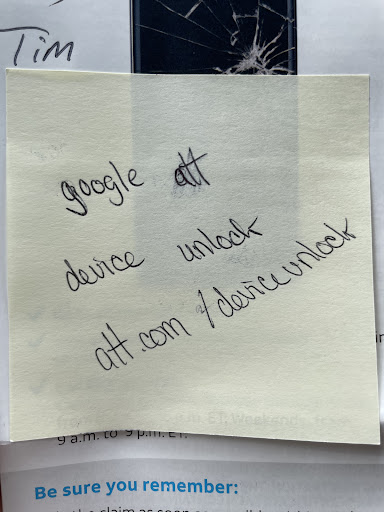 Tim
google att
device unlock
att.com/deviceunlock
ET, Weekends
9 a.m. to 9 p.m. ET.
Be sure you remember:
the claim as soon